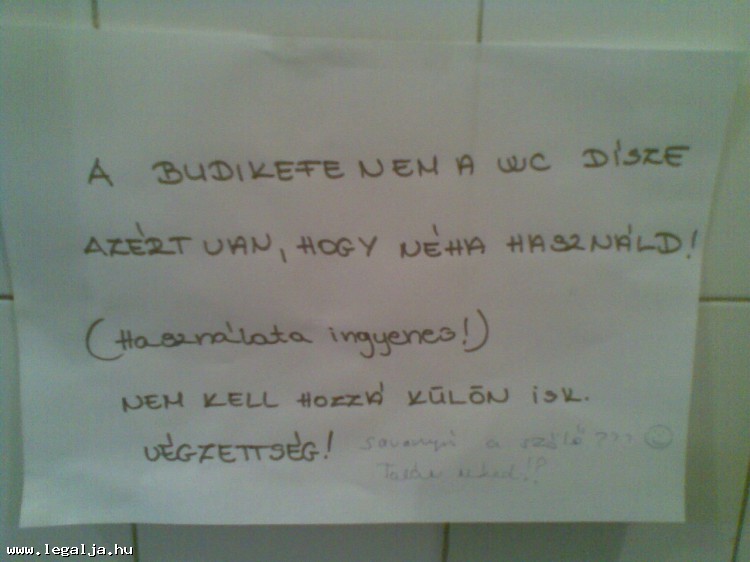 A BUDIKEFE NEM A WC DÍSZE
AZÉRT VAN, HOGY NÉHA HASZNÁLD!
(Használata ingyenes!)
NEM KELL HOZZÁ KÜLÖN ISK.
VÉGZETTSÉG! savanyú a szőlő???
Talán neked!?
www.legalja.hu